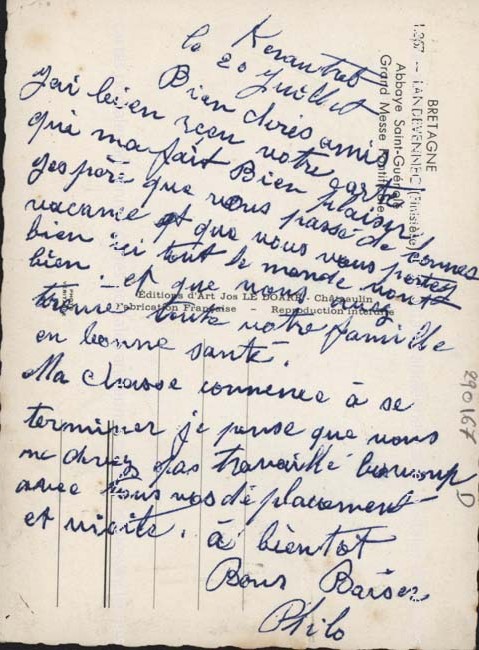 Kerantret
le 20 Juillet
Bien chérs amis
j'ai bien reçu votre carte
qui ma fait Bien plaisir
j'espère que vous passé de bonnes
vacance et que vous vous portez
bien ici tout le monde vont
bien. et que vous
trouve toute votre famille
en bonne santé.
Ma chasse commence à se
terminer je pense que vous
ne devez pas travaillé beaucoup
avec tous vos déplacement
et visite. à bientôt
Bons Baisers
Philo
BRETAGNE
1.267 — LANDEVENNEC (Finistère)
Abbaye Saint-Guénolé
Grand Messe Pontificale
Editions d'Art Jos LE DOARÉ - Châteaulin
Fabrication Française – Reproduction interdite
290167
D